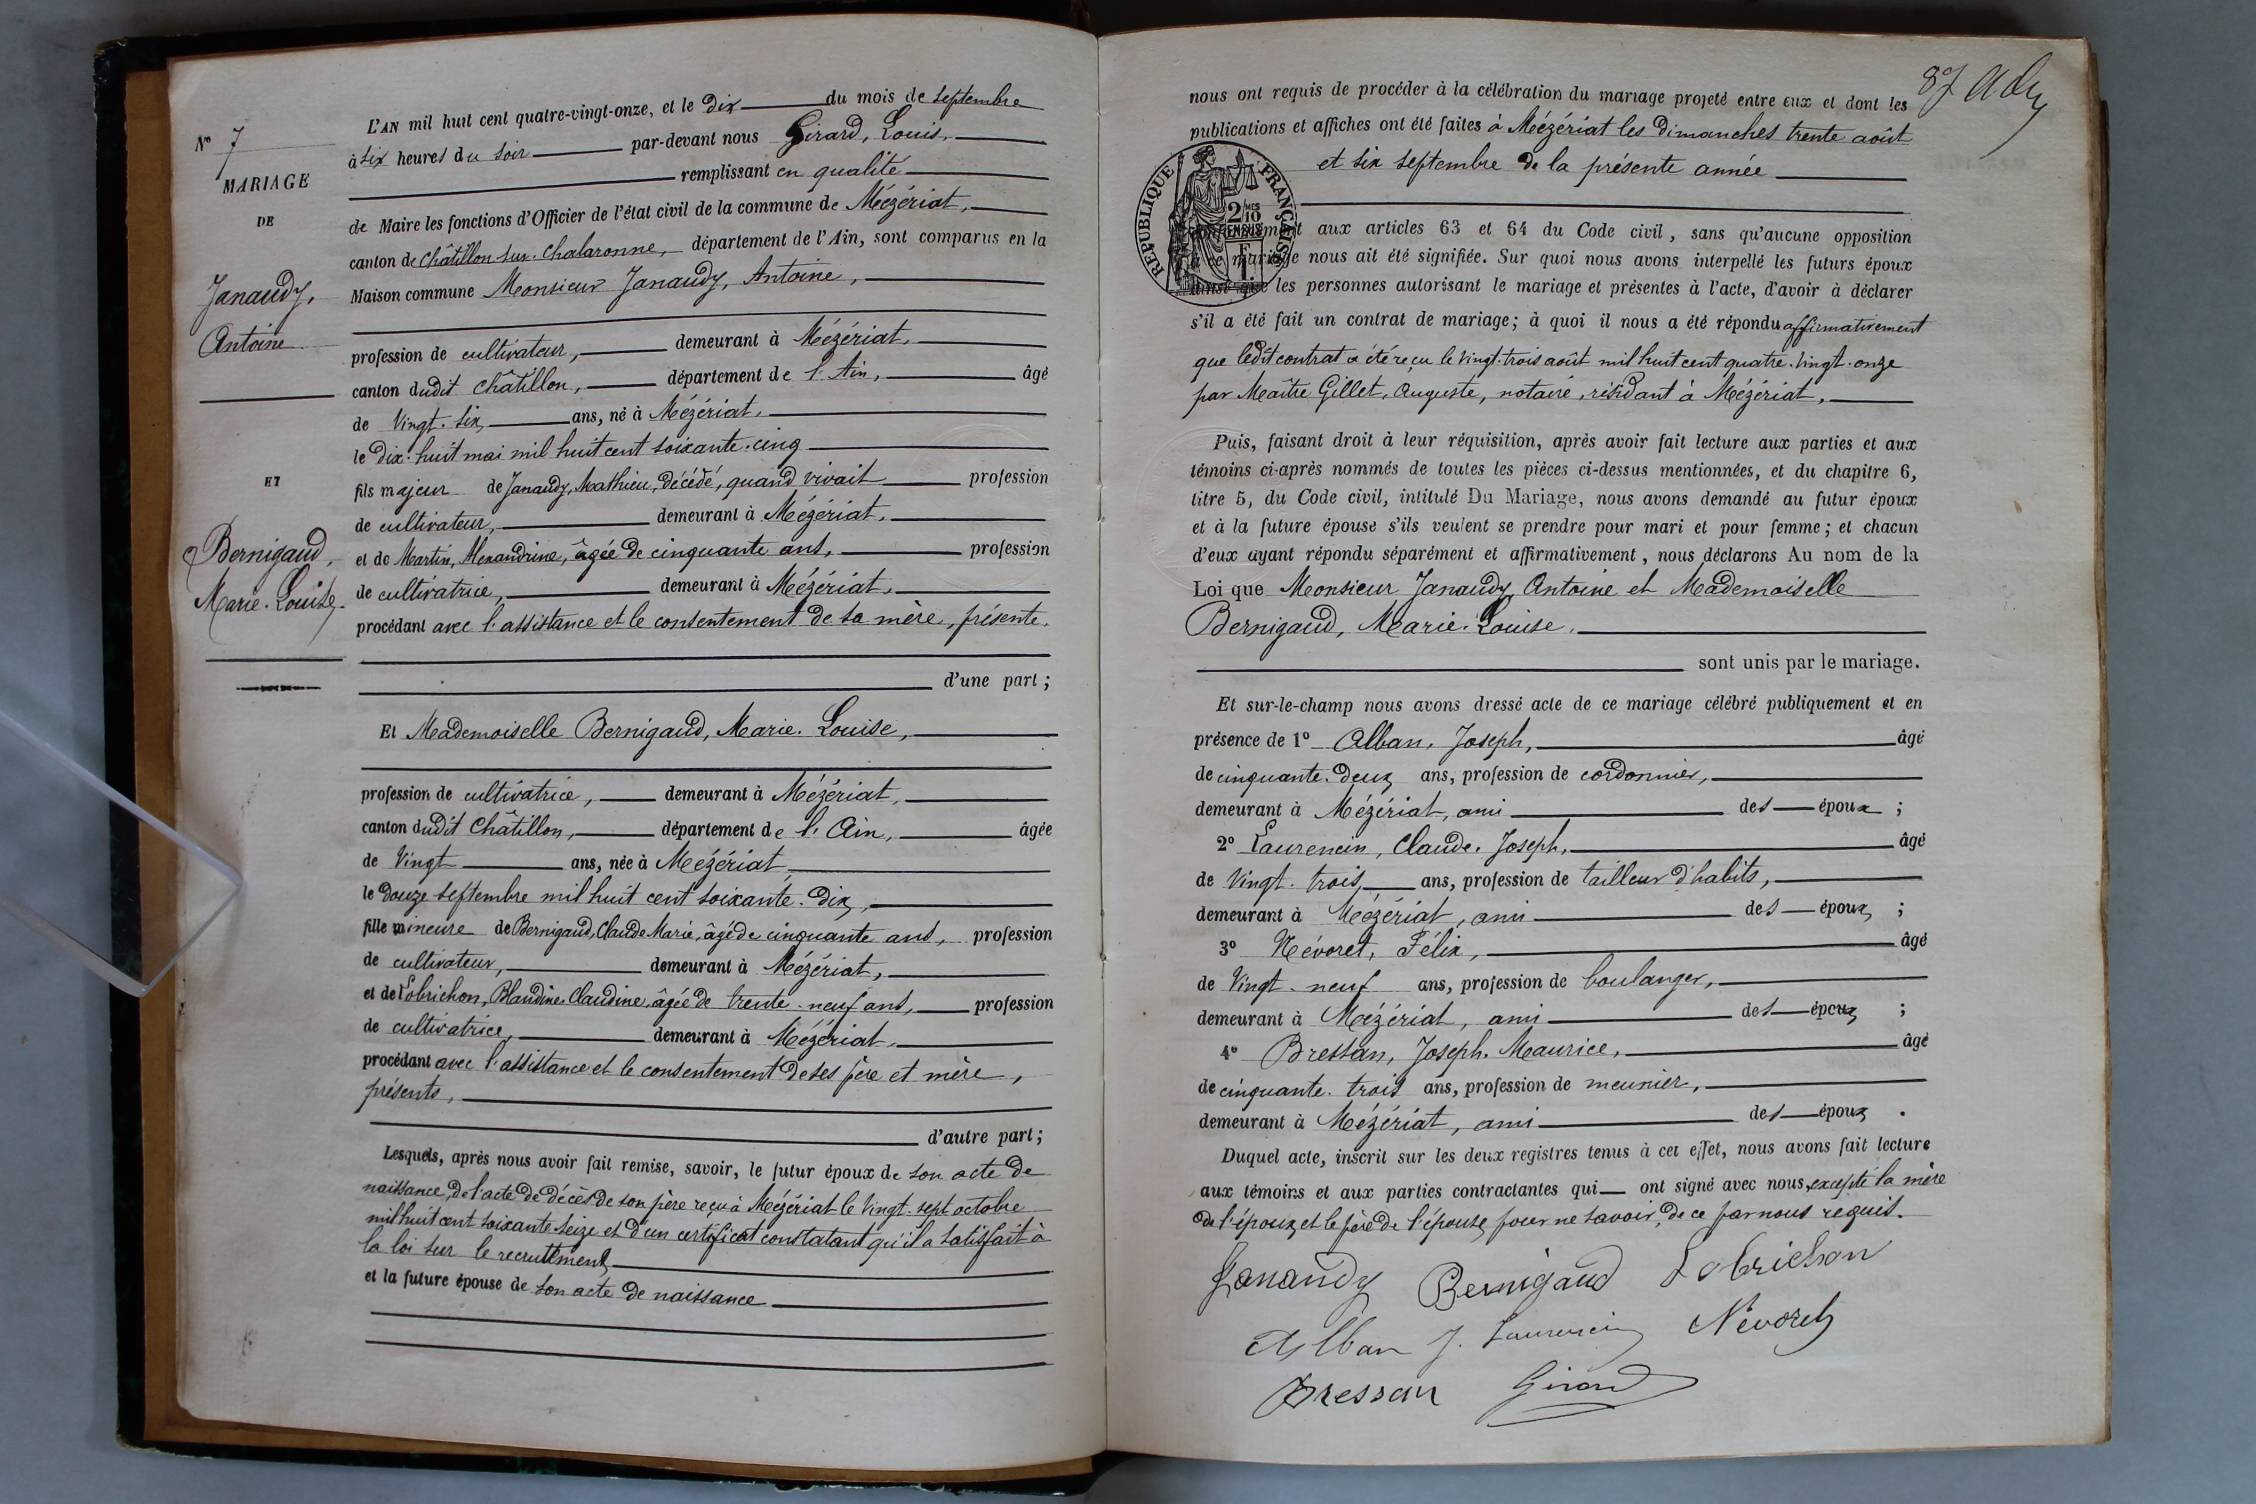 N° 7
MARIAGE
DE
Janaudy,
Antoine
ET
Bernigaud,
Marie-Louise.
L'AN mil huit cent quatre-vingt-onze, et le dix du mois de septembre
à six heures du soir par-devant nous Girard, Louis,
remplissant en qualité
de Maire les fonctions d'Officier de l'état civil de la commune de Mézériat,
canton de Châtillon-sur-Chalaronne, département de l'Ain, sont comparus en la
Maison commune Monsieur Janaudy, Antoine,
profession de cultivateur, demeurant à Mézériat,
canton dudit Châtillon, département de l'Ain, âgé
de vingt-six ans, né à Mézériat,
le dix-huit mai mil huit cent soixante-cinq
fils majeur de Janaudy, Mathieu, décédé, quand vivait profession
de cultivateur, demeurant à Mézériat,
et de Martin, Alexandrine, âgée de cinquante ans, profession
de cultivatrice, demeurant à Mézériat,
procédant avec l'assistance et le consentement de sa mère, présente.
d'une part;
Et Mademoiselle Bernigaud, Marie-Louise,
profession de cultivatrice, demeurant à Mézériat,
canton dudit Châtillon, département de l'Ain, âgée
de vingt ans, née à Mézériat
le douze septembre mil huit cent soixante-dix,
fille mineure de Bernigaud, Claude Marie, âgé de cinquante ans, profession
de cultivateur, demeurant à Mézériat,
et de Lobrichon, Blandine-Claudine, âgée de trente-neuf ans, profession
de cultivatrice, demeurant à Mézériat,
procédant avec l'assistance et le consentement de ses père et mère,
présents,
d'autre part;
Lesquels, après nous avoir fait remise, savoir, le futur époux de son acte de
naissance, de l'acte de décès de son père reçu à Mézériat le vingt-sept octobre
mil huit cent soixante seize et d'un certificat constatant qu'il a satisfait à
la loi sur le recrutement
et la future épouse de son acte de naissance
87
nous ont requis de procéder à la célébration du mariage projeté entre eux et dont les
publications et affiches ont été faites à Mézériat les dimanches trente août
et six septembre de la présente année
RÉPUBLIQUE FRANÇAISE
2/10
EN SUS
conformément aux articles 63 et 64 du Code civil, sans qu'aucune opposition
à ce mariage nous ait été signifiée. Sur quoi nous avons interpellé les futurs époux
ainsi que les personnes autorisant le mariage et présentes à l'acte, d'avoir à déclarer
s'il a été fait un contrat de mariage; à quoi il nous a été répondu affirmativement
que ledit contrat a été reçu le vingt-trois août mil huit cent quatre-vingt-onze
par Maître Gillet, Auguste, notaire, résidant à Mézériat,
Puis, faisant droit à leur réquisition, après avoir fait lecture aux parties et aux
témoins ci-après nommés de toutes les pièces ci-dessus mentionnées, et du chapitre 6,
titre 5, du Code civil, intitulé Du Mariage, nous avons demandé au futur époux
et à la future épouse s'ils veulent se prendre pour mari et pour femme; et chacun
d'eux ayant répondu séparément et affirmativement, nous déclarons Au nom de la
Loi que Monsieur Janaudy Antoine et Mademoiselle
Bernigaud, Marie-Louise,
sont unis par le mariage.
Et sur-le-champ nous avons dressé acte de ce mariage célébré publiquement et en
présence de 1° Alban, Joseph, âgé
de cinquante-deux ans, profession de cordonnier,
demeurant à Mézériat, ami des époux;
2° Laurencin, Claude-Joseph, âgé
de vingt-trois ans, profession de tailleur d'habits,
demeurant à Mézériat, ami des époux;
3° Névoret, Félix, âgé
de vingt-neuf ans, profession de boulanger,
demeurant à Mézériat, ami des époux;
4° Bressan, Joseph-Maurice, âgé
de cinquante-trois ans, profession de meunier,
demeurant à Mézériat, ami des époux.
Duquel acte, inscrit sur les deux registres tenus à cet effet, nous avons fait lecture
aux témoins et aux parties contractantes qui ont signé avec nous, excepté la mère
de l'époux et le père de l'épouse pour ne savoir, de ce par nous requis.
Janaudy Bernigaud Lobrichon
Alban J. Laurencin Névoret
Bressan Girard